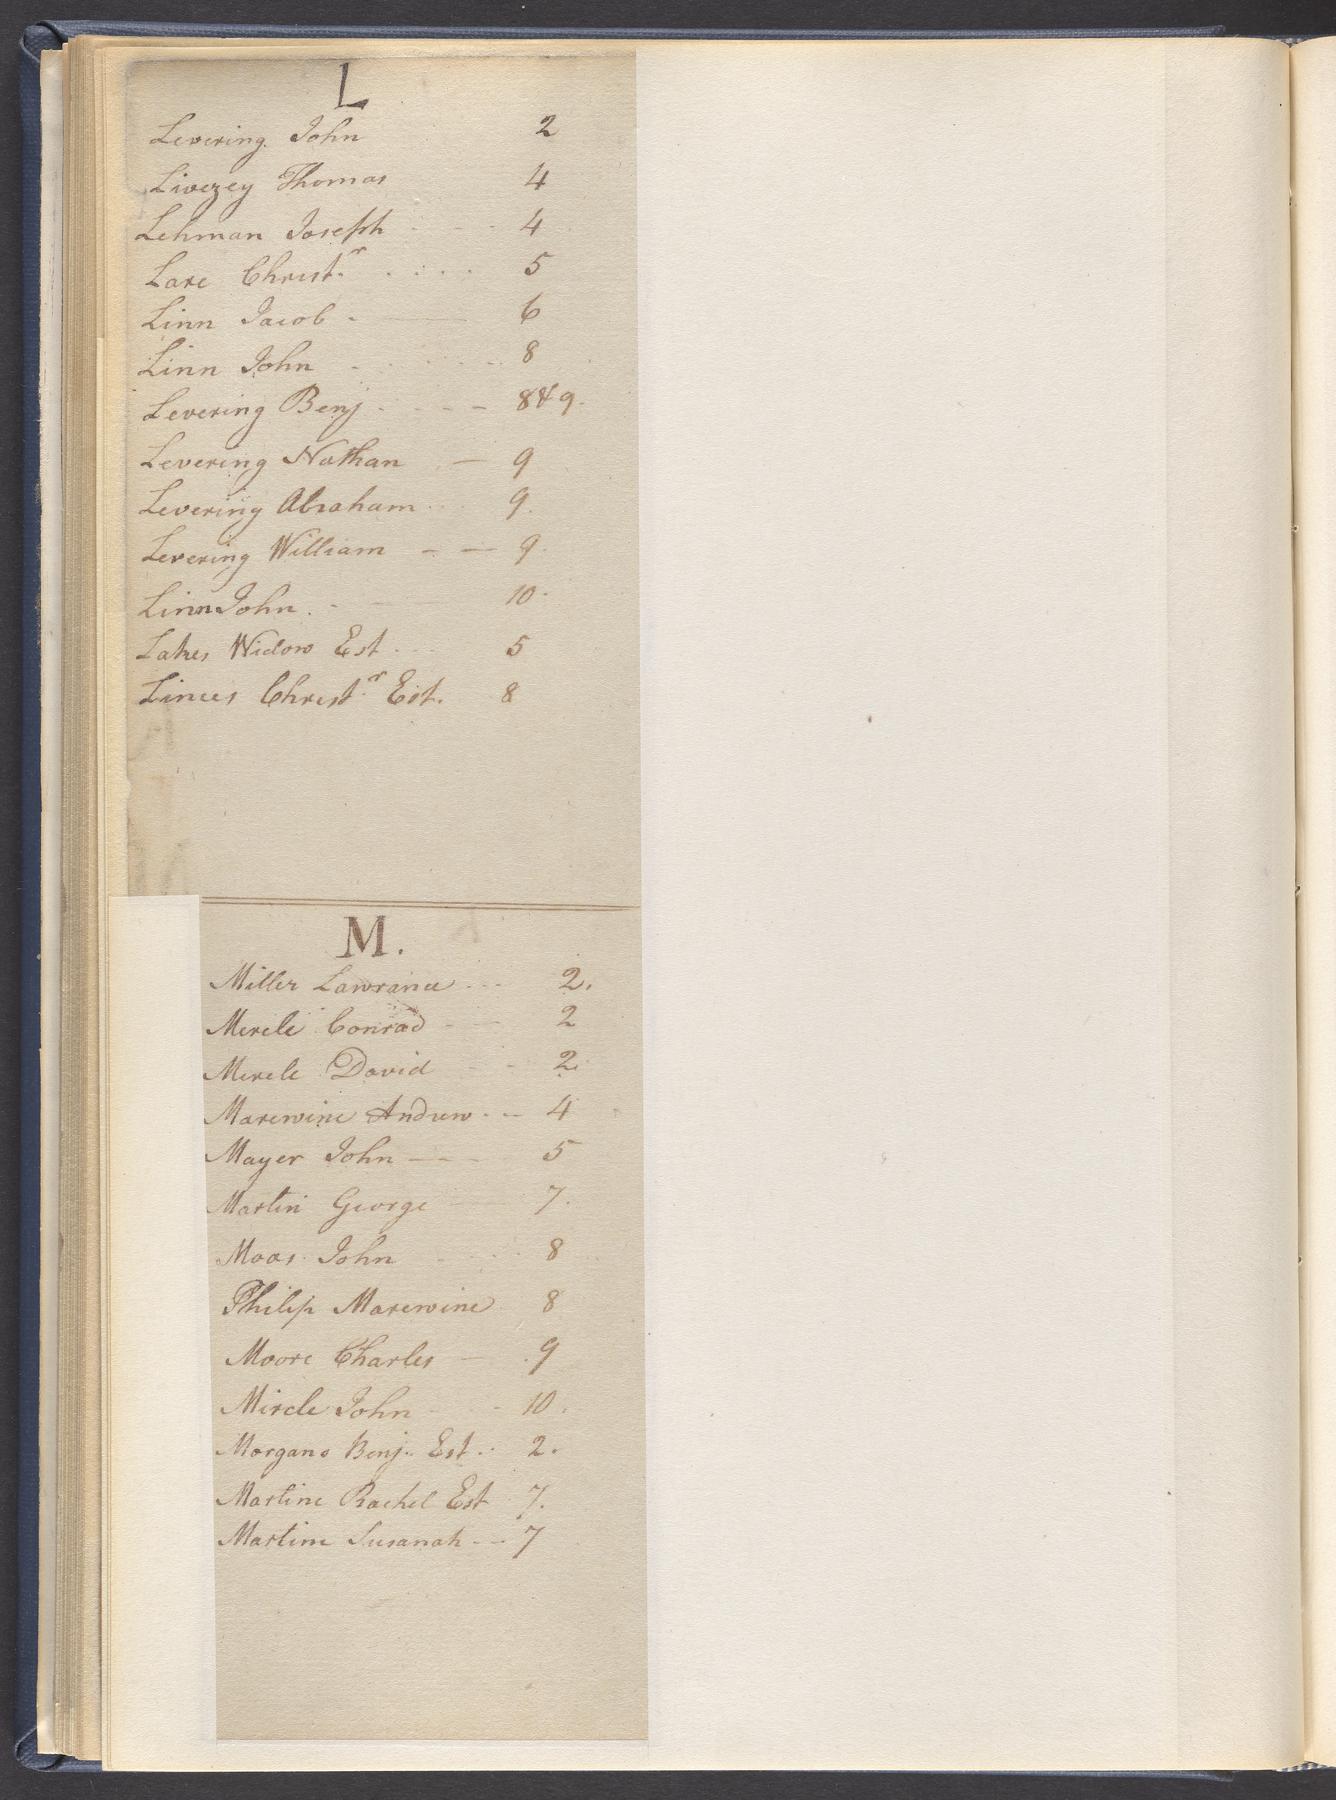 L
Levering John 2
Livezey Thomas 4
Lehman Joseph - - - 4
Lare Christ.r . . . . 5
Linn Jacob - — 6
Linn John - - - - 8
Levering Benj - - - - 8 & 9.
Levering Nathan — 9
Levering Abraham - - - 9.
Levering William - — 9.
Linn John. - - 10.
Lakes Widow Est - - - 5
Linces Christ.r Est. 8
M.
Miller Lawrance - - - 2.
Mercle Conrad - - 2
Mercle David - - 2.
Marewine Andrew - - - 4
Mayer John - - - 5
Martin George — 7.
Moas John - - - 8
Philip Marewine 8
Moore Charles — 9
Mircle John - - 10.
Morgans Benj. Est. . 2.
Martins Rachel Est 7.
Martins Susanah - - - 7